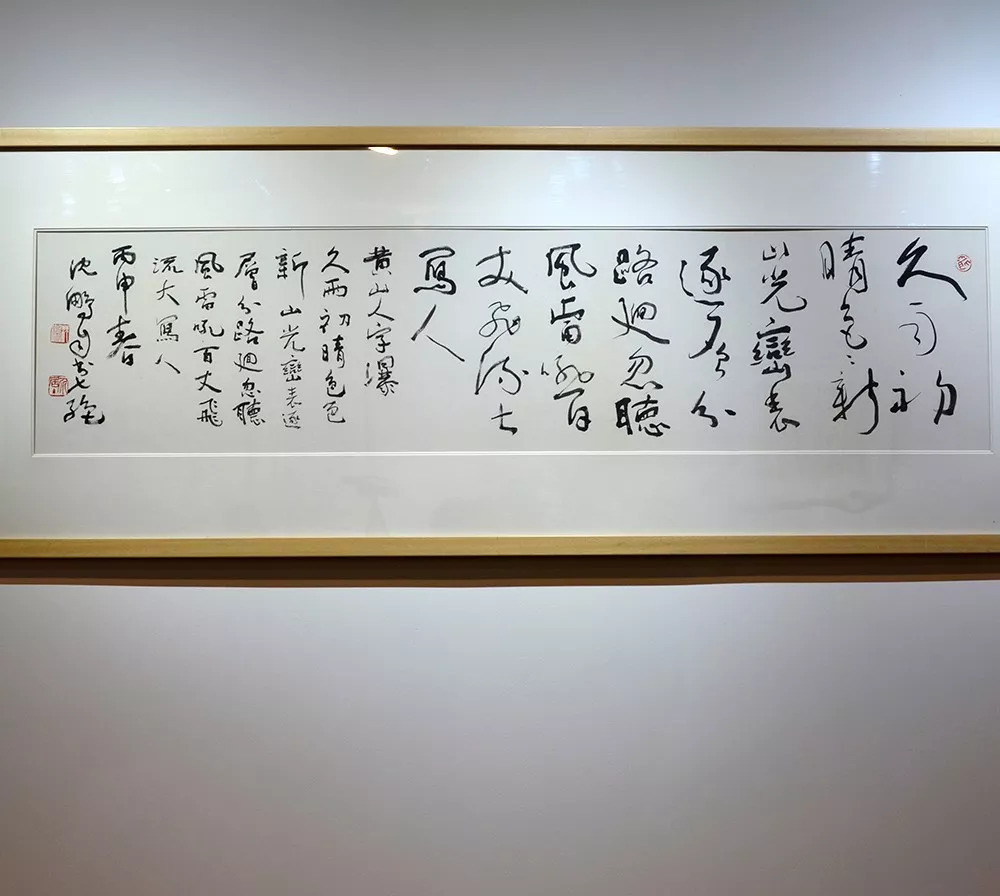 久雨初
晴色々新
山光巒表
逐層分
路迴忽聽
風雷吼百
丈飛流大
寫人
黄山人字瀑
久雨初晴色色
新山光巒表逐
層分路迴忽聽
風雷吼百丈飛
流大寫人
丙申春
沈鵬自书七絶